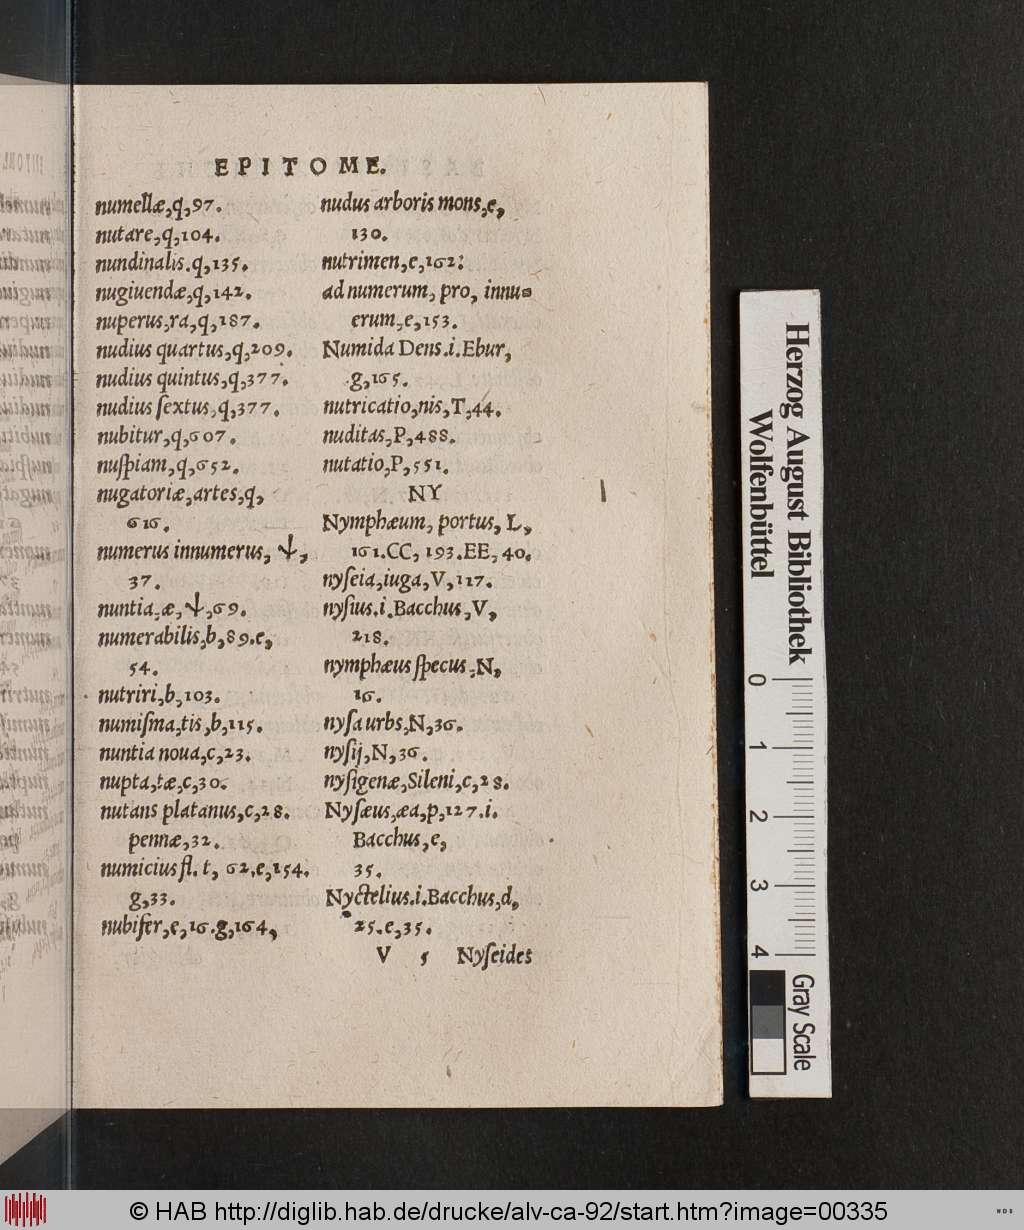 EPITOME.
numellæ,q,97.
nutare,q,104.
nundinalis.q,135.
nugiuendæ,q,142.
nuperus,ra,q,187.
nudius quartus,q,209.
nudius quintus,q,377.
nudius ſextus,q,377.
nubitur,q,607.
nuſpiam,q,652.
nugatoriæ,artes,q,
616.
numerus innumerus, ,
37.
nuntia,æ, ,69.
numerabilis,b,89.e,
54.
nutriri,b,103.
numiſma,tis,b,115.
nuntia noua,c,23.
nupta,tæ,c,30.
nutans platanus,c,28.
pennæ,32.
numicius fl. t, 62.e,154.
g,33.
nubifer,e,16.g,164,
nudus arboris mons,e,
130.
nutrimen,e,162:
ad numerum, pro, innu-
erum,e,153.
Numida Dens.i.Ebur,
g,165.
nutricatio,nis,T,44.
nuditas,P,488.
nutatio,P,551.
NY
Nymphæum, portus, L,
161.CC, 193.EE, 40.
nyſeia,iuga,V,117.
nyſius.i.Bacchus,V,
218.
nymphæus ſpecus,N,
16.
nyſa urbs,N,36.
nyſij,N,36.
nyſigenæ,Sileni,c,28.
Nyſæus,æa,p,127.i.
Bacchus,e,
35.
Nyctelius.i.Bacchus,d,
25.e,35.
V 5 Nyſeides
Herzog August Bibliothek
Wolfenbüttel
0 1 2 3 4
Gray Scale
© HAB http://diglib.hab.de/drucke/alv-ca-92/start.htm?image=00335